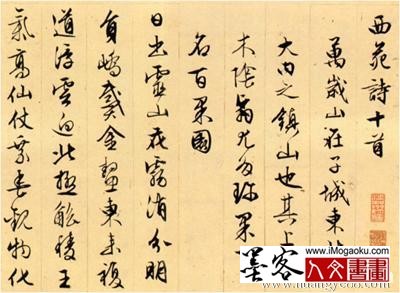 西苑詩十首
萬歲山在子城東
大内之鎮山也其上
木陰翳尤多珍果
名百果園
日出靈山花霧消分明
員嶠戴金鰲東來複
道浮雲迥北極觚稜王
氣高仙仗乘春觀物化
www.iMogaoku.com
墨客